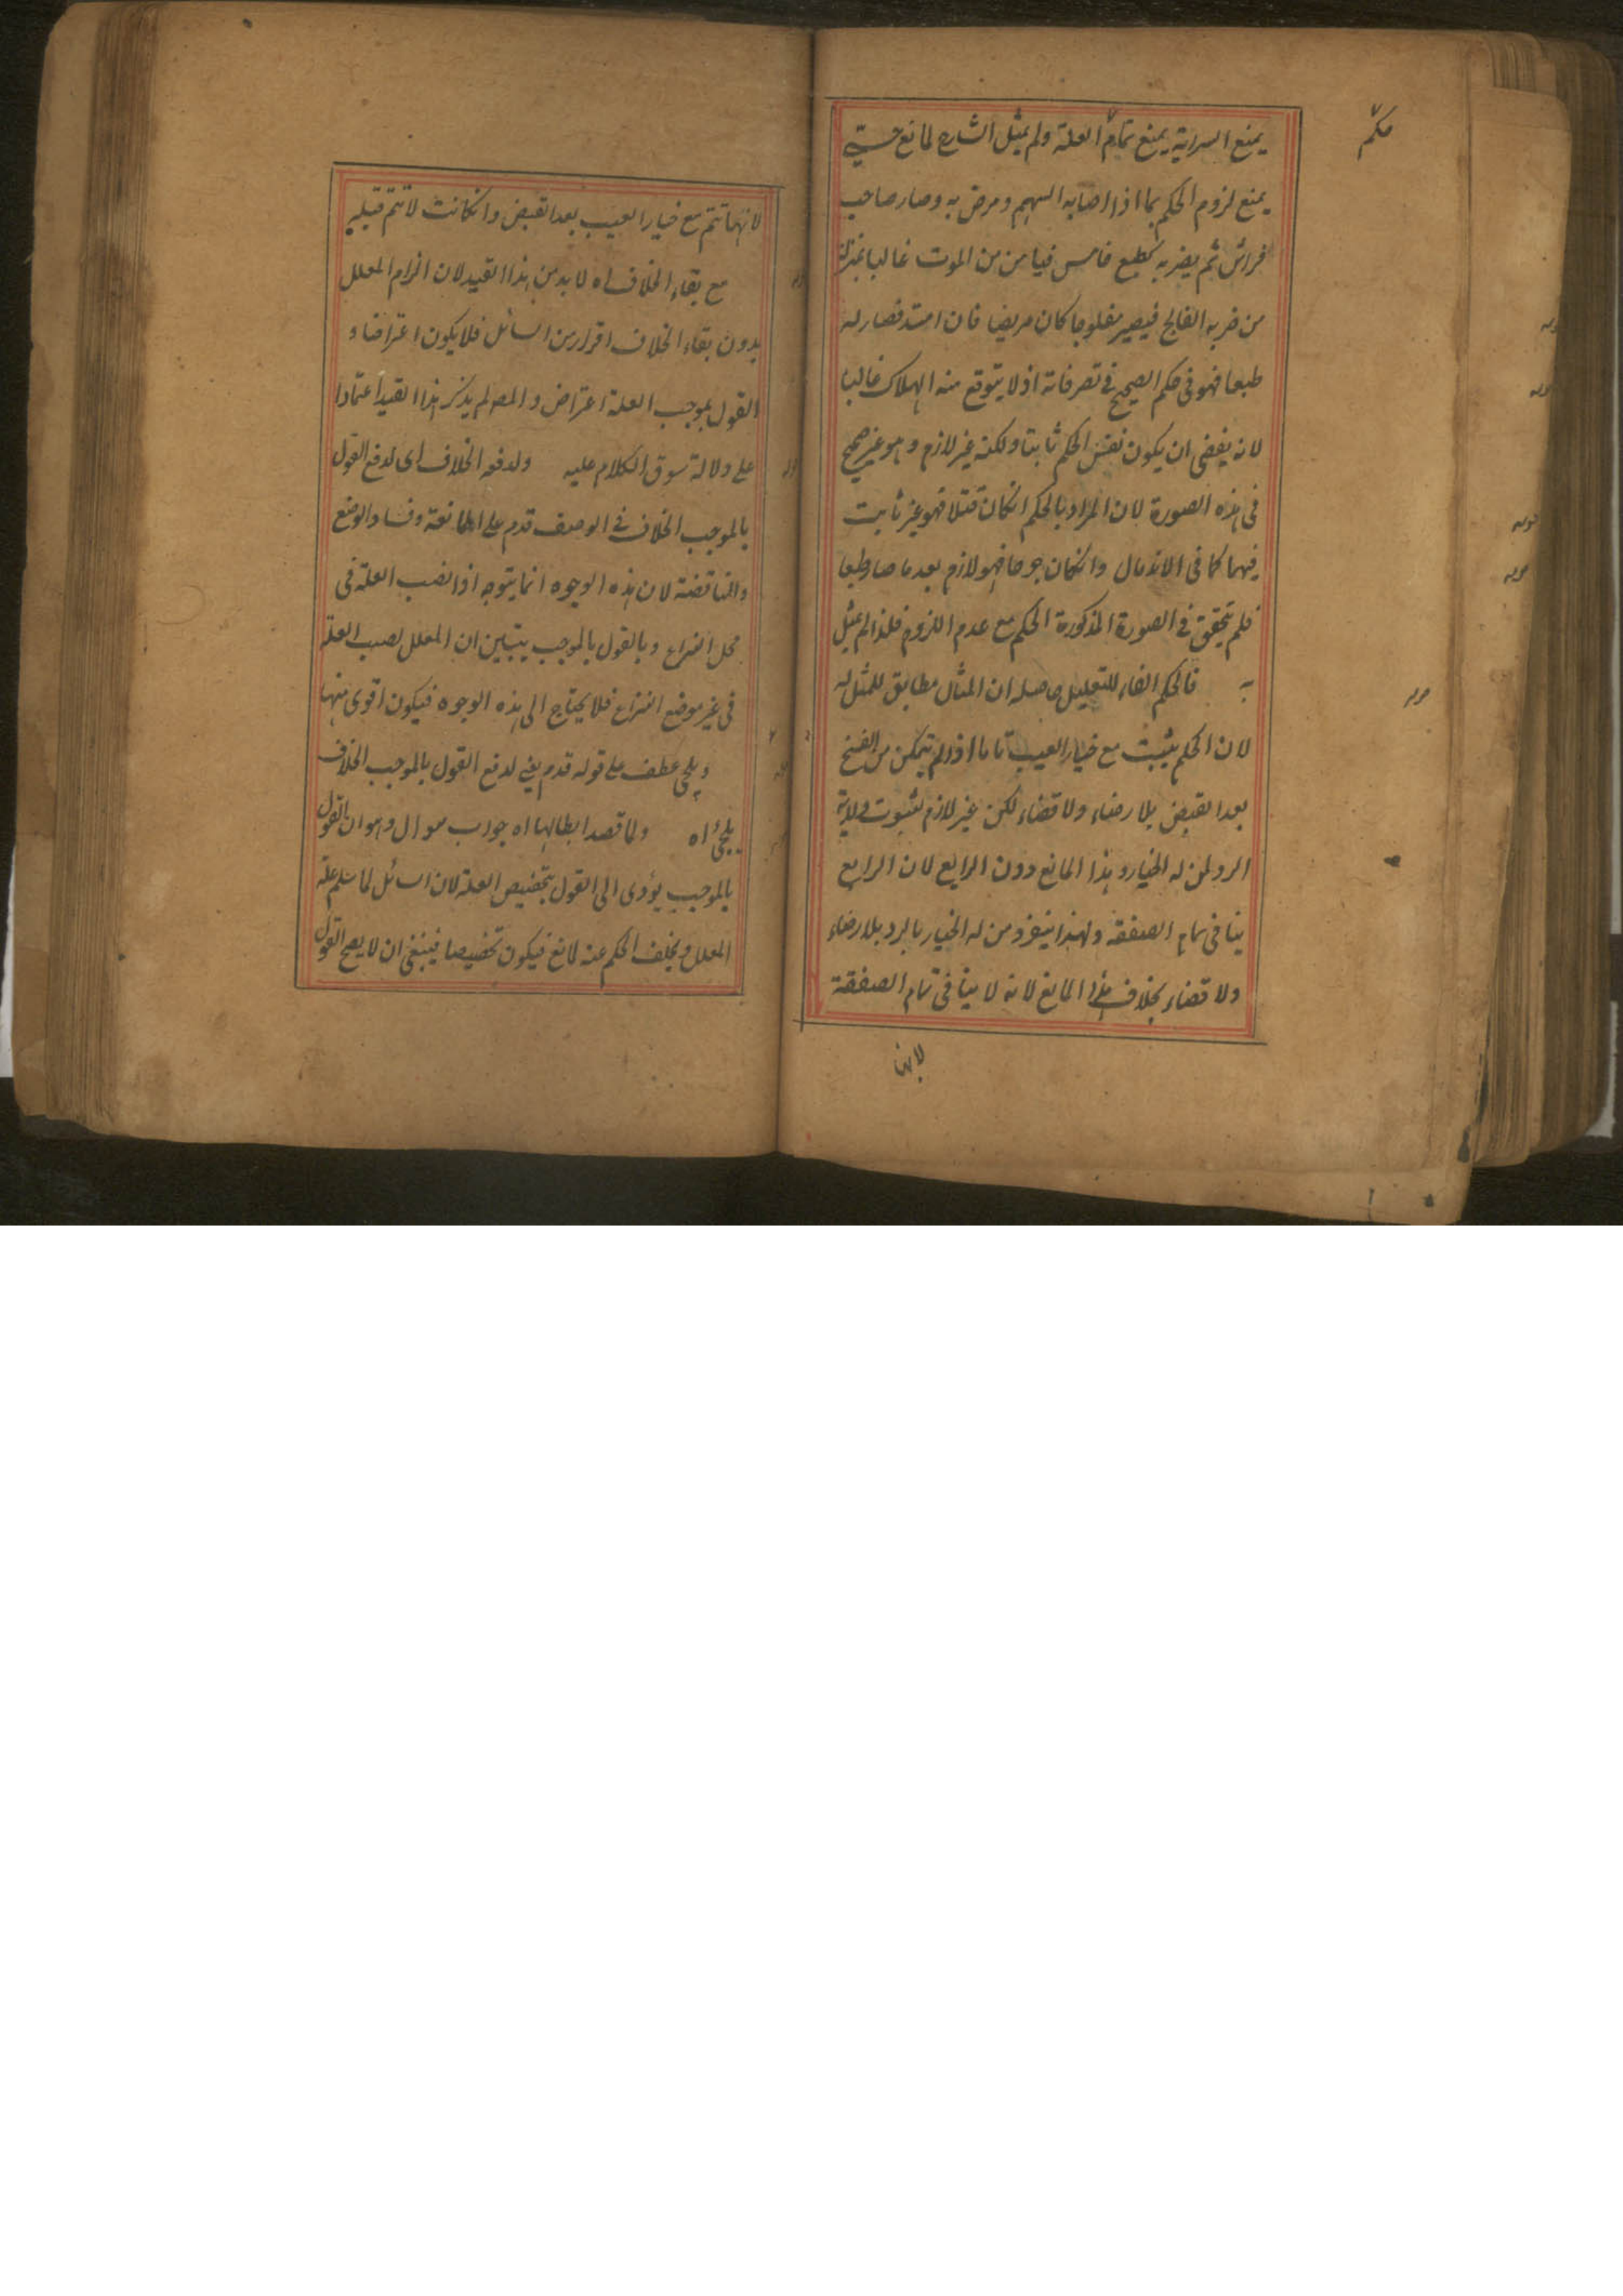 يمنع السراية يمنع تمام العلة ولم يمثل الشارح لمانع حسي
حكم
يمنع لزوم الحكم بما اذا اصابه السهم ومرض به وصار صاحب
فراش ثم يصير به كطبع خامس فيامن من الموت غالبا بمنزلة
من ضربه الفالج فيصير مفلوجا كان مريضا فان امتد فصار له
طبعا فهو فى حكم الصحيح فى تصرفاته اذ لا يتوقع منه الهلاك غالبا
لانه يفضى ان يكون نفس الحكم ثابتا ولكنه غير لازم وهو غير صحيح
فى هذه الصورة لان المراد بالحكم انكان قتلا فهو غير ثابت
فيهما كما فى الاندمال وانكان جرحا فهو لازم بعد ما صار طبعا
فلم يتحقق فى الصورة المذكورة الحكم مع عدم اللزوم فلذا لم يمثل
به فالحكم الفاء للتعليل حاصله ان المثال مطابق للمثل له
لان الحكم يثبت مع خيار العيب تاما اذ لم يتمكن من الفسخ
بعد القبض بلا رضاء ولا قضاء لكن غير لازم لثبوت ولاية
الرد لمن له الخيار وهذا المانع دون الرابع لان الرابع
ينافى تمام الصفقة ولهذا ينفرد من له الخيار بالرد بلا رضاء
ولا قضاء بخلاف هذا المانع لانه لا ينافى تمام الصفقة
لانها
لانها تتم مع خيار العيب بعد القبض وانكانت لا تتم قبله
مع بقاء الخلاف اه لا بد من هذا القيد لان الزام المعلل
بدون بقاء الخلاف اقرار من السائل فلا يكون اعتراضا و
القول بموجب العلة اعتراض والمصـ لم يذكر هذا القيد اعتمادا
على دلالة سوق الكلام عليه ولدفعه الخلاف اى لدفع القول
بالموجب الخلاف فى الوصف قدم على الممانعة وفساد الوضع
والمناقضة لان هذه الوجوه انما يتوجه اذا نصب العلة فى
محل النزاع وبالقول بالموجب يتبين ان المعلل نصب العلة
فى غير موضع النزاع فلا يحتاج الى هذه الوجوه فيكون اقوى منها
ويلجى عطف على قوله قدم يعنى لدفع القول بالموجب الخلاف
يلجئ اه ولما قصد ابطالها اه جواب سوال وهو ان القول
بالموجب يؤدى الى القول بتخصيص العلة لان السائل لما سلم علة
المعلل وتخلف الحكم عنه لمانع فيكون تخصيصا فينبغى ان لا يصح القول